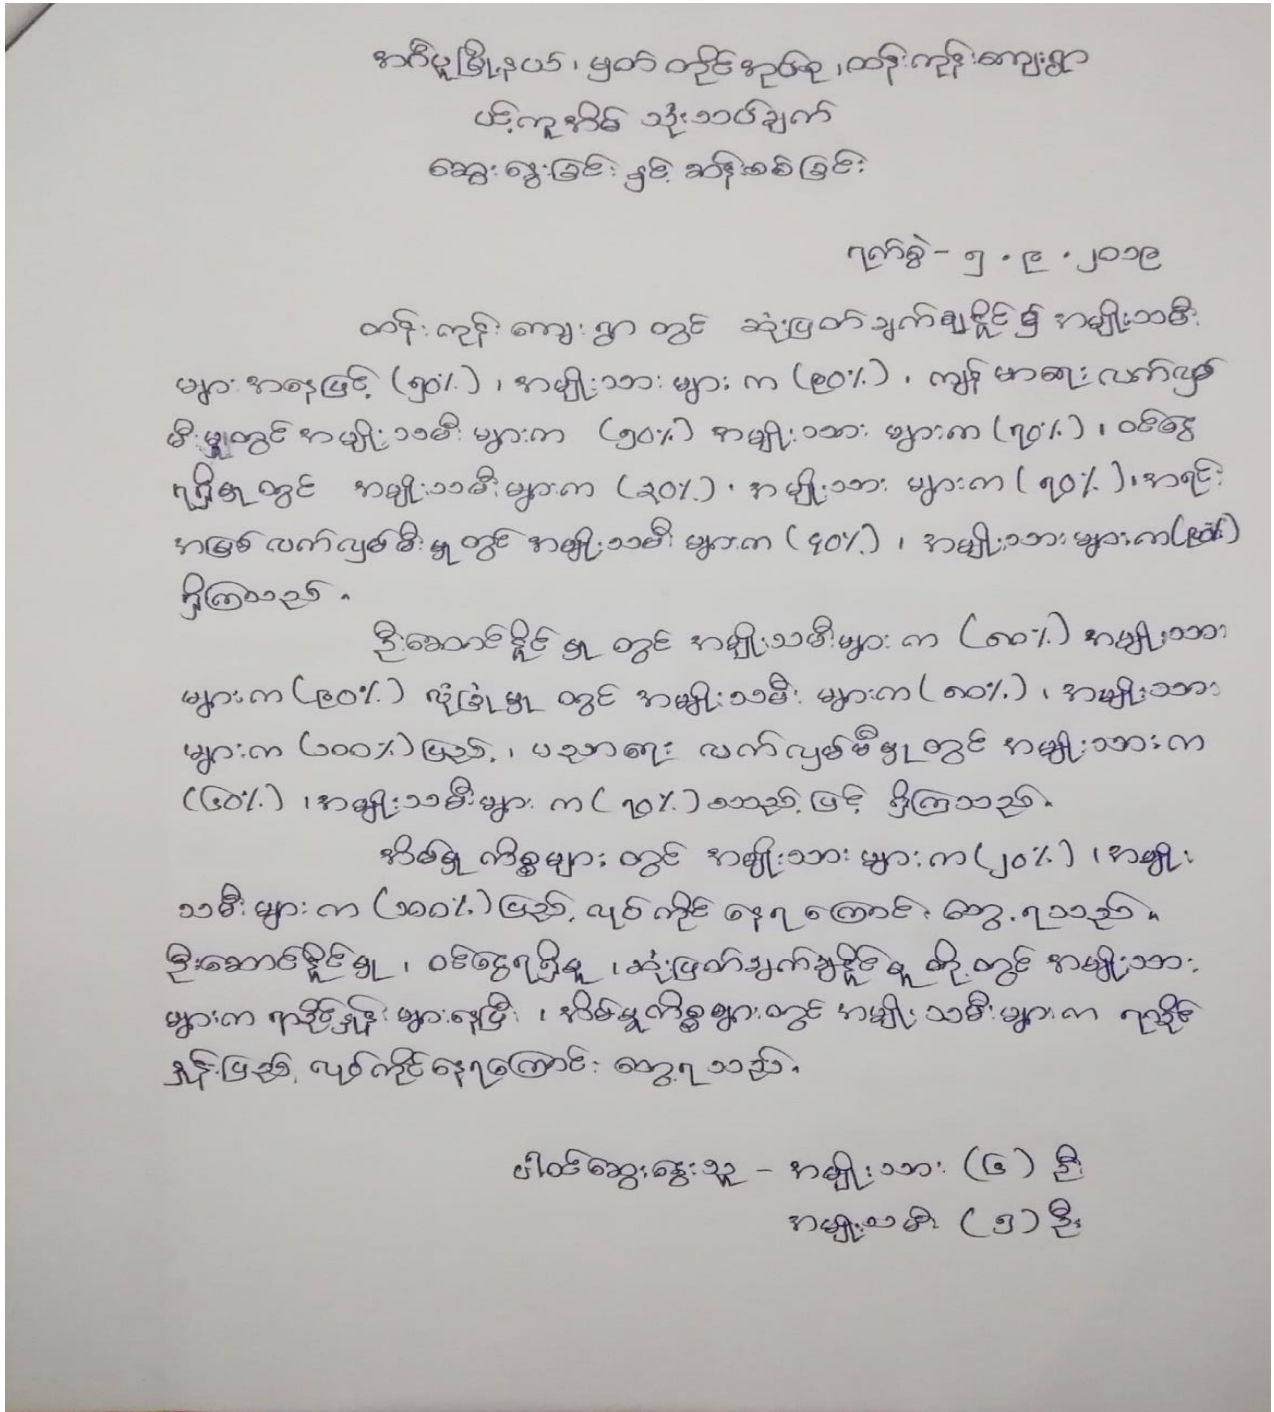 အင်္ဂပူမြို့နယ်၊ မှတ် တိုင်အုပ်စု ၊တန်းကုန်းကျေးရွာ
ပင့်ကူအိမ် သုံးသပ်ချက်
ဆွေးနွေးခြင်း နှင့် ဆန်းစစ်ခြင်း
ရက်စွဲ - ၅ . ၉ . ၂၀၁၉
တန်းကုန်းကျေးရွာ တွင် ဆုံးဖြတ်ချက်ချနိုင်မှု၌ အမျိုးသမီး
များ အနေဖြင့် (၅၀%) ၊ အမျိုးသား များ က (၉၀%) ၊ ကျန်းမာရေး လက်လှမ်း
မီးမှုတွင် အမျိုးသမီး များက (၅၀%) အမျိုးသား များက (၇၀%) ၊ ဝင်ငွေ
ရရှိမှု တွင် အမျိုးသမီးများက (၃၀%) ၊ အမျိုးသား များက (၅၀%)၊ အရင်း
အမြစ် လက်လှမ်းမီးမှု တွင် အမျိုးသမီး များက (၄၀%) ၊ အမျိုးသားများက(၉၀%)
ရှိကြသည် ။
ဦးဆောင်နိုင်မှု တွင် အမျိုးသမီးများ က (၈၀%) အမျိုးသား
များက (၉၀%) လုံခြုံမှု တွင် အမျိုးသမီး များက (၈၀%) ၊ အမျိုးသား
များက (၁၀၀%) ဖြည့် ၊ ပညာရေး လက်လှမ်မီမှုတွင် အမျိုးသားက
(၆၀%) ၊အမျိုးသမီးများ က (၇၀%) စသည့်ဖြင့် ရှိကြသည်။
အိမ်မှု ကိစ္စများ တွင် အမျိုးသား များက (၂၀%) ၊အမျိုး
သမီး များ က (၁၀၀%) ဖြည့် လုပ်ကိုင် နေရ ကြောင်း တွေ့ ရသည် ။
ဦးဆောင်နိုင်မှု ၊ ဝင်ငွေရရှိမှု ၊ဆုံးဖြတ်ချက်ချနိုင်မှု တို့ တွင် အမျိုးသား
များက ရာခိုင်နှုန်း များနေပြီး ၊ အိမ်မှုကိစ္စများတွင် အမျိုးသမီးများက ရာခိုင်
နှုန်းဖြည့် လုပ်ကိုင်နေရကြောင်း တွေ့ရသည်။
ပါဝင်ဆွေးနွေးသူ - အမျိုးသား (၆) ဦး
အမျိုးသမီး (၅) ဦး